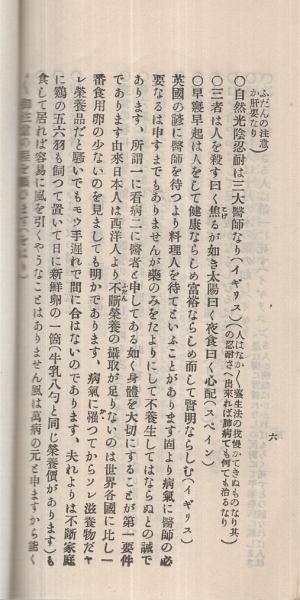 ふだんの注意
が肝要なり
○自然光陰忍耐は三大醫師なり(イギリス)(人はなか〱養生法の我慢ができぬものなり其
の忍耐さへ出來れば肺病でも何でも治るなり)
○三者は人を殺す曰く焦るが如き太陽曰く夜食曰く心配(スペイン)
○早寢早起は人をして健康ならしめ富裕ならしめ而して賢明ならしむ(イギリス)
英國の諺に醫師を待つより料理人を待てといふことがあります固より病氣に醫師の必
要なるは申すまでもありませんが藥のみをたよりにして不養生してはならぬとの誠で
あります、所謂一に看病二に醫者と申してある如く身體を大切にすることが第一要件
であります由來日本人は西洋人より不斷榮養の攝取が足りないのは世界各國に比し一
番食用卵の少ないのを見ましても明かであります、病氣に罹つてからソレ滋養物だヤ
レ榮養品だと騷いでもモウ手遲れで間に合はないのであります、夫れよりは不斷家庭
に鶏の五六羽も飼つて置いて日に新鮮卵の一箇(牛乳八勺と同じ榮養價があります)も
食して居れば容易に風を引くやうなことはありません風は萬病の元と申ますから能く
六